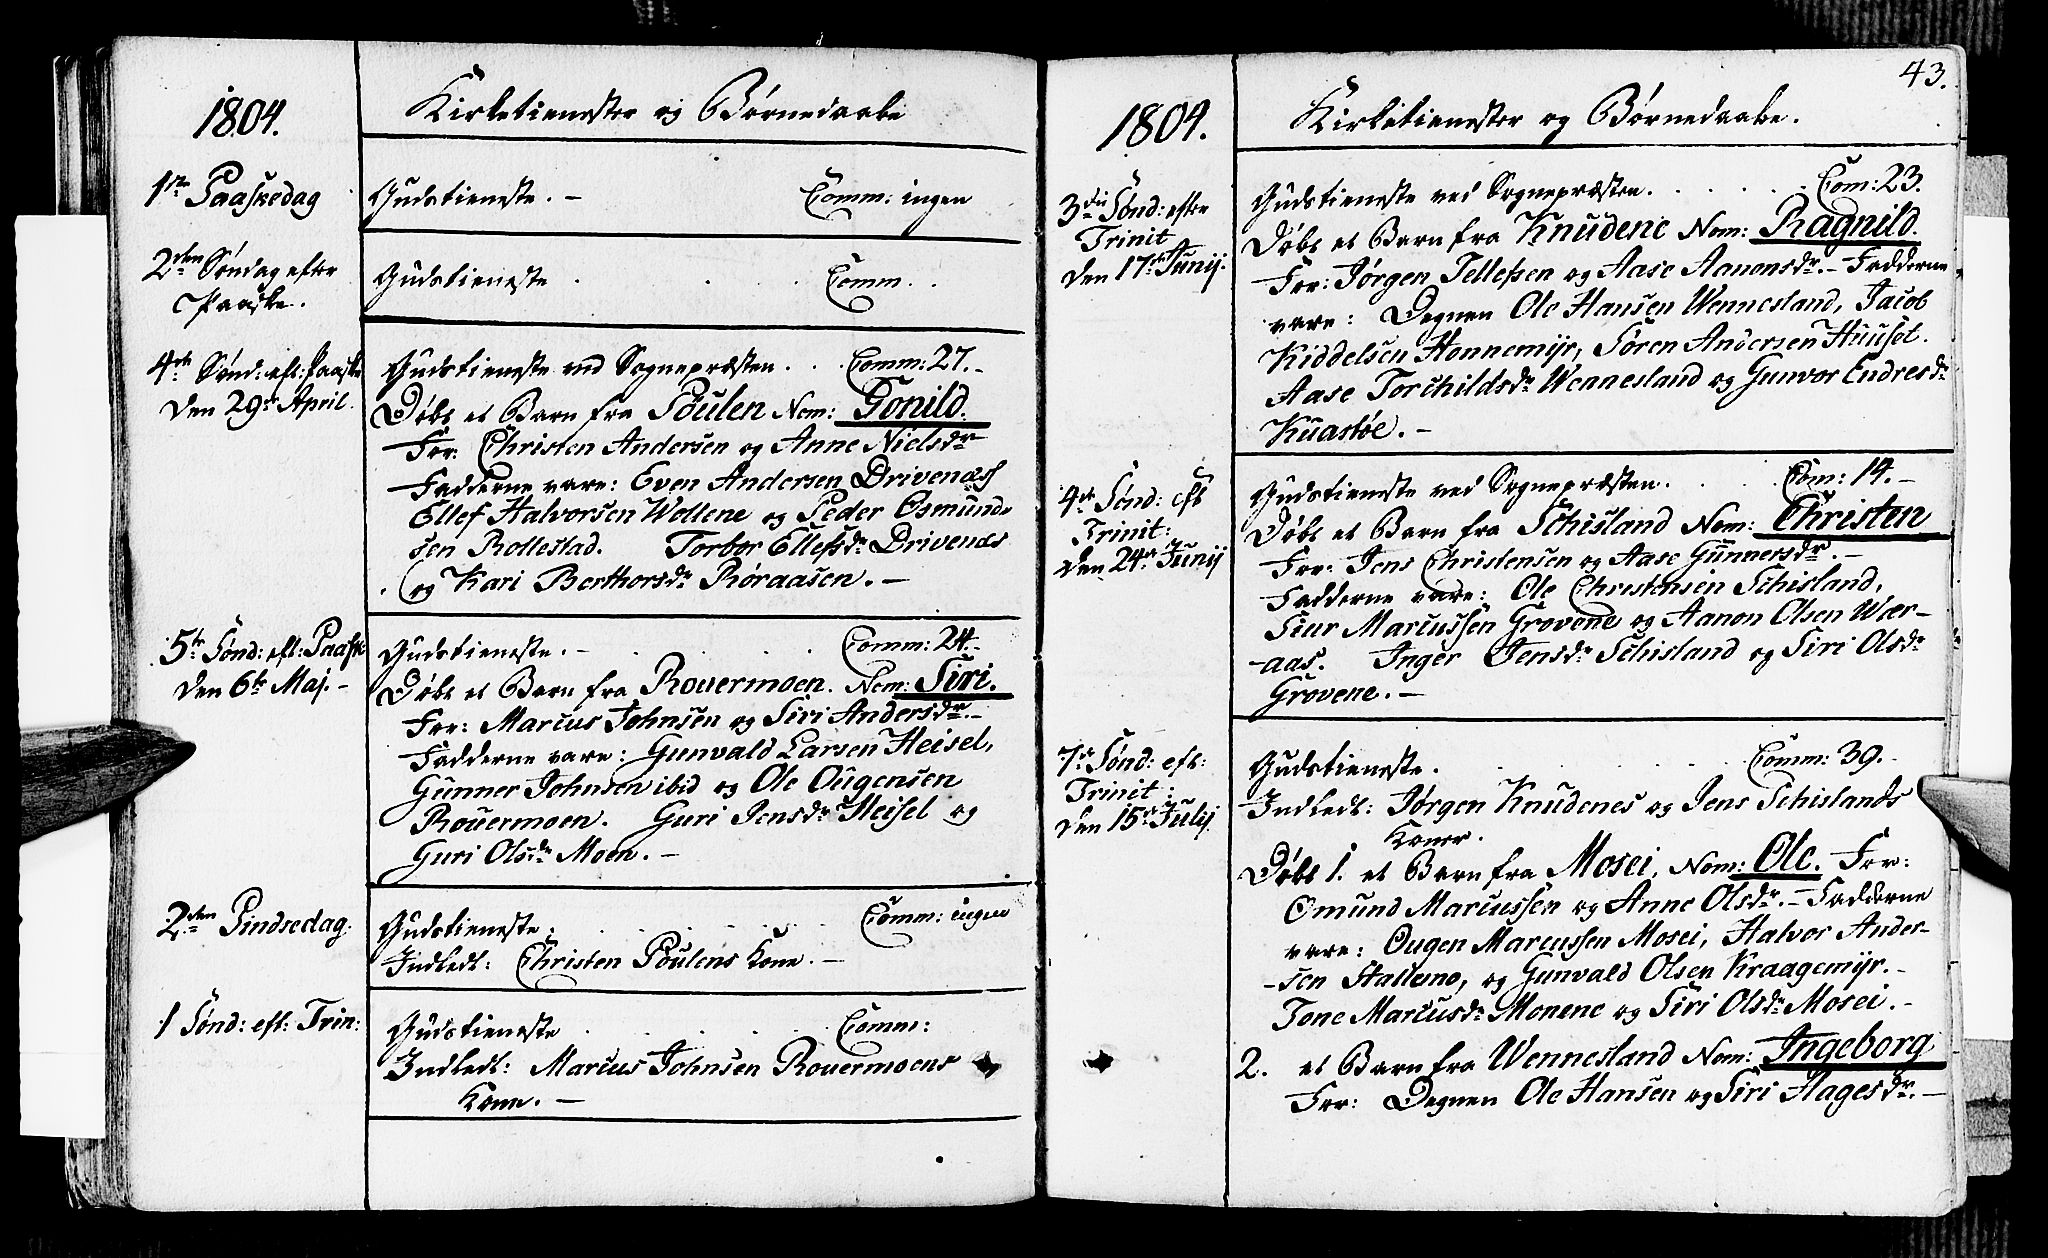 1804.
Kirketienester og Børnedaabe
1ste Paaskedag
Gudstieneste. - Comm: ingen
2den Søndag efter
Paaske.
Gudstieneste . . . Comm. . .
4de Sønd: eft: Paaske
den 29de April.
Gudstieneste ved Sognepræsten . . Comm: 27. -
Døbt et Barn fra Poulen Nom: Gonild.
For: Christen Andersen og Anne Nielsdr
Fadderne vare: Even Andersen Drivenæs
Ellef Halvorsen Wollene og Peder Osmund-
sen Rollestad. Torbor Ellefsdr Drivenæs
og Kari Berthorsdr Røraasen. -
5te Sønd: eft: Paaske
den 6te Maj. -
Gudstieneste. - . . . . Comm: 24. -
Døbt et Barn fra Rouermoen. Nom: Siri.
For: Marcus Johnsen og Siri Andersdr. -
Fadderne vare: Gunvald Larsen Heisel,
Gunner Johnsen ibid og Ole Ougensen
Rouermoen. Guri Jensdr Heisel og
Guri Olsdr Moen. -
2den Pindsedag.
Gudstieneste. . . . . . Comm: ingen
Indledt: Christen Poulens Kone. -
1 Sønd: eft: Trin:
Gudstieneste . . . . . Comm:
Indledt: Marcus Johnsen Rouermoens
Kone. -
43.
1804.
Kirketienester og Børnedaabe.
3die Sønd: efter
Trinit
den 17de Junij.
Gudstieneste ved Sognepræsten. . . . . . Com: 23.
Døbt et Barn fra Knudene Nom: Ragnild.
For: Jørgen Tellefsen og Aase Aanonsdr. - Fadderne
vare: Degnen Ole Hansen Wennesland, Jacob
Kiddelsen Honnemyr, Søren Andersen Huuset.
Aase Torchildsdr Wennesland og Gunvor Endresdr
Kuastøe. -
4de Sønd: eft
Trinit:
den 24de Junij
Gudstieneste ved Sognepræsten. . . . . Com: 14. -
Døbt et Barn fra Schisland Nom: Christen
For: Jens Christensen og Aase Gunnersdr. -
Fadderne vare: Ole Christensen Schisland,
Siur Marcussen Grovene og Aanon Olsen Wær-
-aas. Inger Jensdr Schisland og Siri Olsdr
Grovene. -
7de Sønd: eft:
Trinit:
den 15de Julij.
Gudstieneste. . . . . . . Comm: 39. -
Indledt: Jørgen Knudenes og Jens Schislands
Koner.
Døbt 1. et Barn fra Mosei, Nom: Ole. For:
Omund Marcussen og Anne Olsdr. - Fadderne
vare: Ougen Marcussen Mosei, Halvor Ander-
-sen Stallemo, og Gunvald Olsen Kraagemyr. -
Tone Marcusdr Monene og Siri Olsdr Mosei. -
2. et Barn fra Wennesland Nom: Ingeborg
For: Degnen Ole Hansen og Siri Aagesdr. -